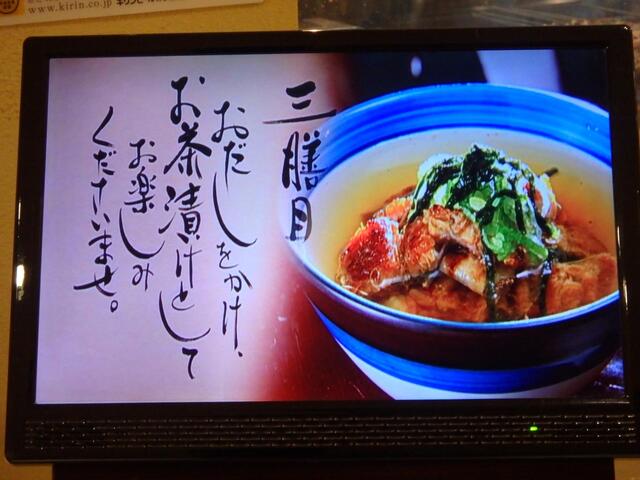 www.kirin.co.jp キリンビール
三膳目
おだしをかけ、
お茶漬けとして
お楽しみ
くださいませ。